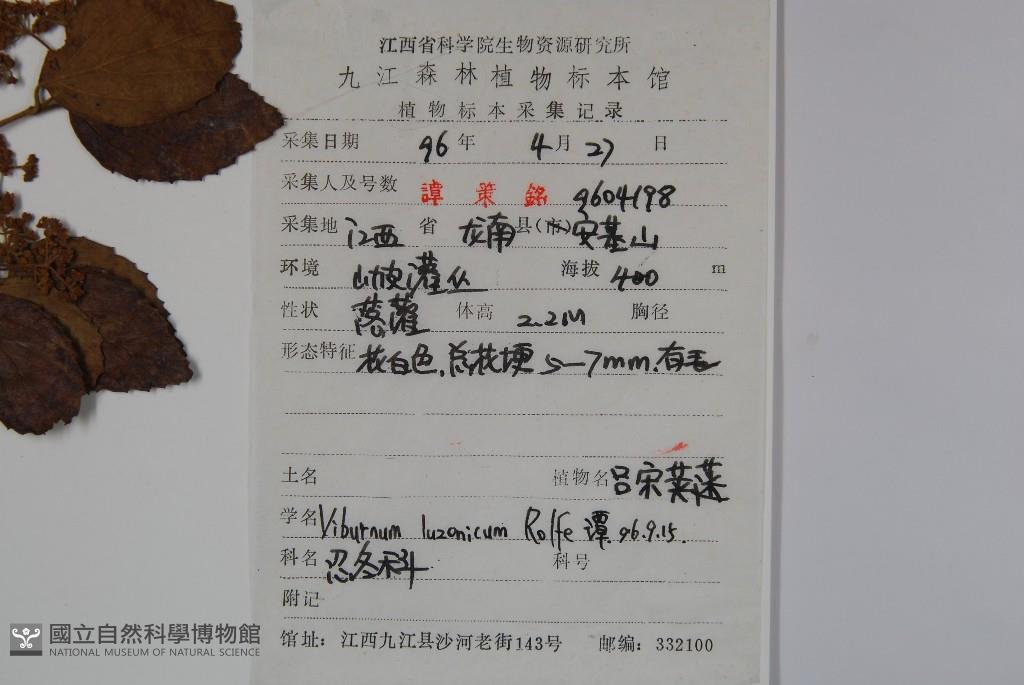 江西省科学院生物资源研究所
九江森林植物标本馆
植物标本采集记录
采集日期 96年 4月 27 日
采集人及号数 譚策銘 9604198
采集地 江西 省 龙南县(市)安基山
环境 山坡灌丛 海拔 400 m
性状 落灌 体高 2.2M 胸径
形态特征 花白色,总花梗5—7mm.有毛
土名 植物名 吕宋荚蒾
学名 Viburnum luzonicum Rolfe 谭.96.9.15.
科名 忍冬科 科号
附记
馆址:江西九江县沙河老街143号 邮编:332100
國立自然科學博物館
NATIONAL MUSEUM OF NATURAL SCIENCE